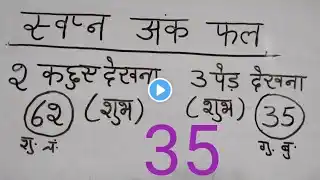 स्वप्न अंक फल
२ देखना 3 पेड़ देखना
62 (शुभ) (शुभ) 35
शु. चं. 35 गु. बु.